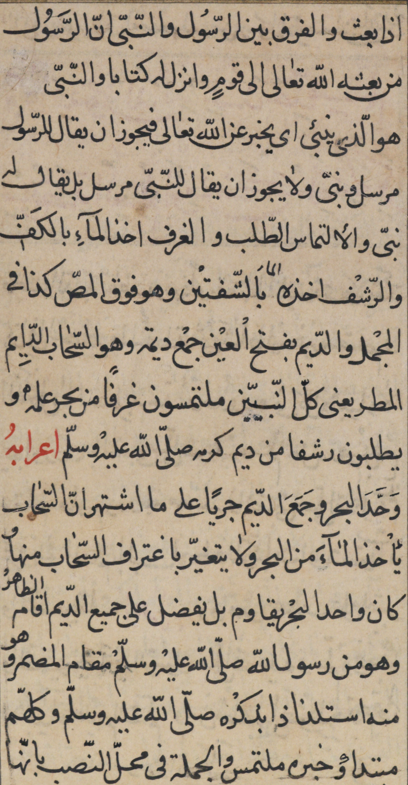 اذا بعث والفرق بين الرّسول والنّبّى انّ الرّسول
من بعثه الله تعالى الى قومٍ وانزل له كتابا والنّبّى
هو الّذى ينبئى اى يخبر عن الله تعالى فيجوز ان يقال للرّسول
مرسل ونبّى ولا يجوز ان يقال للنّبّى مرسل بل يقال له
نبّى والالتماس الطّلب والغرف اخذ المآء بالكفّ
والرّشف اخذه اى الما بالشّفتين وهو فوق المصّ كذا فى
المجمل والدّيم بفتح العين جمع ديمة وهو السّحاب الدّايم
المطر يعنى كلّ النّبيّن ملتمسون غرفًا من بحر علمه و
يطلبون رشفا من ديم كرمه صلّى الله عليه وسلّم اعرابهُ
وَحَّدَ البحر وجَمَعَ الدّيم جريًا على ما اشتهر انّ السّحاب
يأخذ المآءَ من البحر ولا يتغيّر باغتراف السّحاب منها و
كان واحد البحر يقاوم بل يفضل على جميع الدّيم اقام الظاهرُ
وهو من رسول الله صلّى الله عليه وسلّم مقام المضمر وهو
منه استلذاذا بذكره صلّى الله عليه وسلّم وكلّهم
مبتداؤ خبره ملتمس والجملة فى محلّ النّصب بانّها